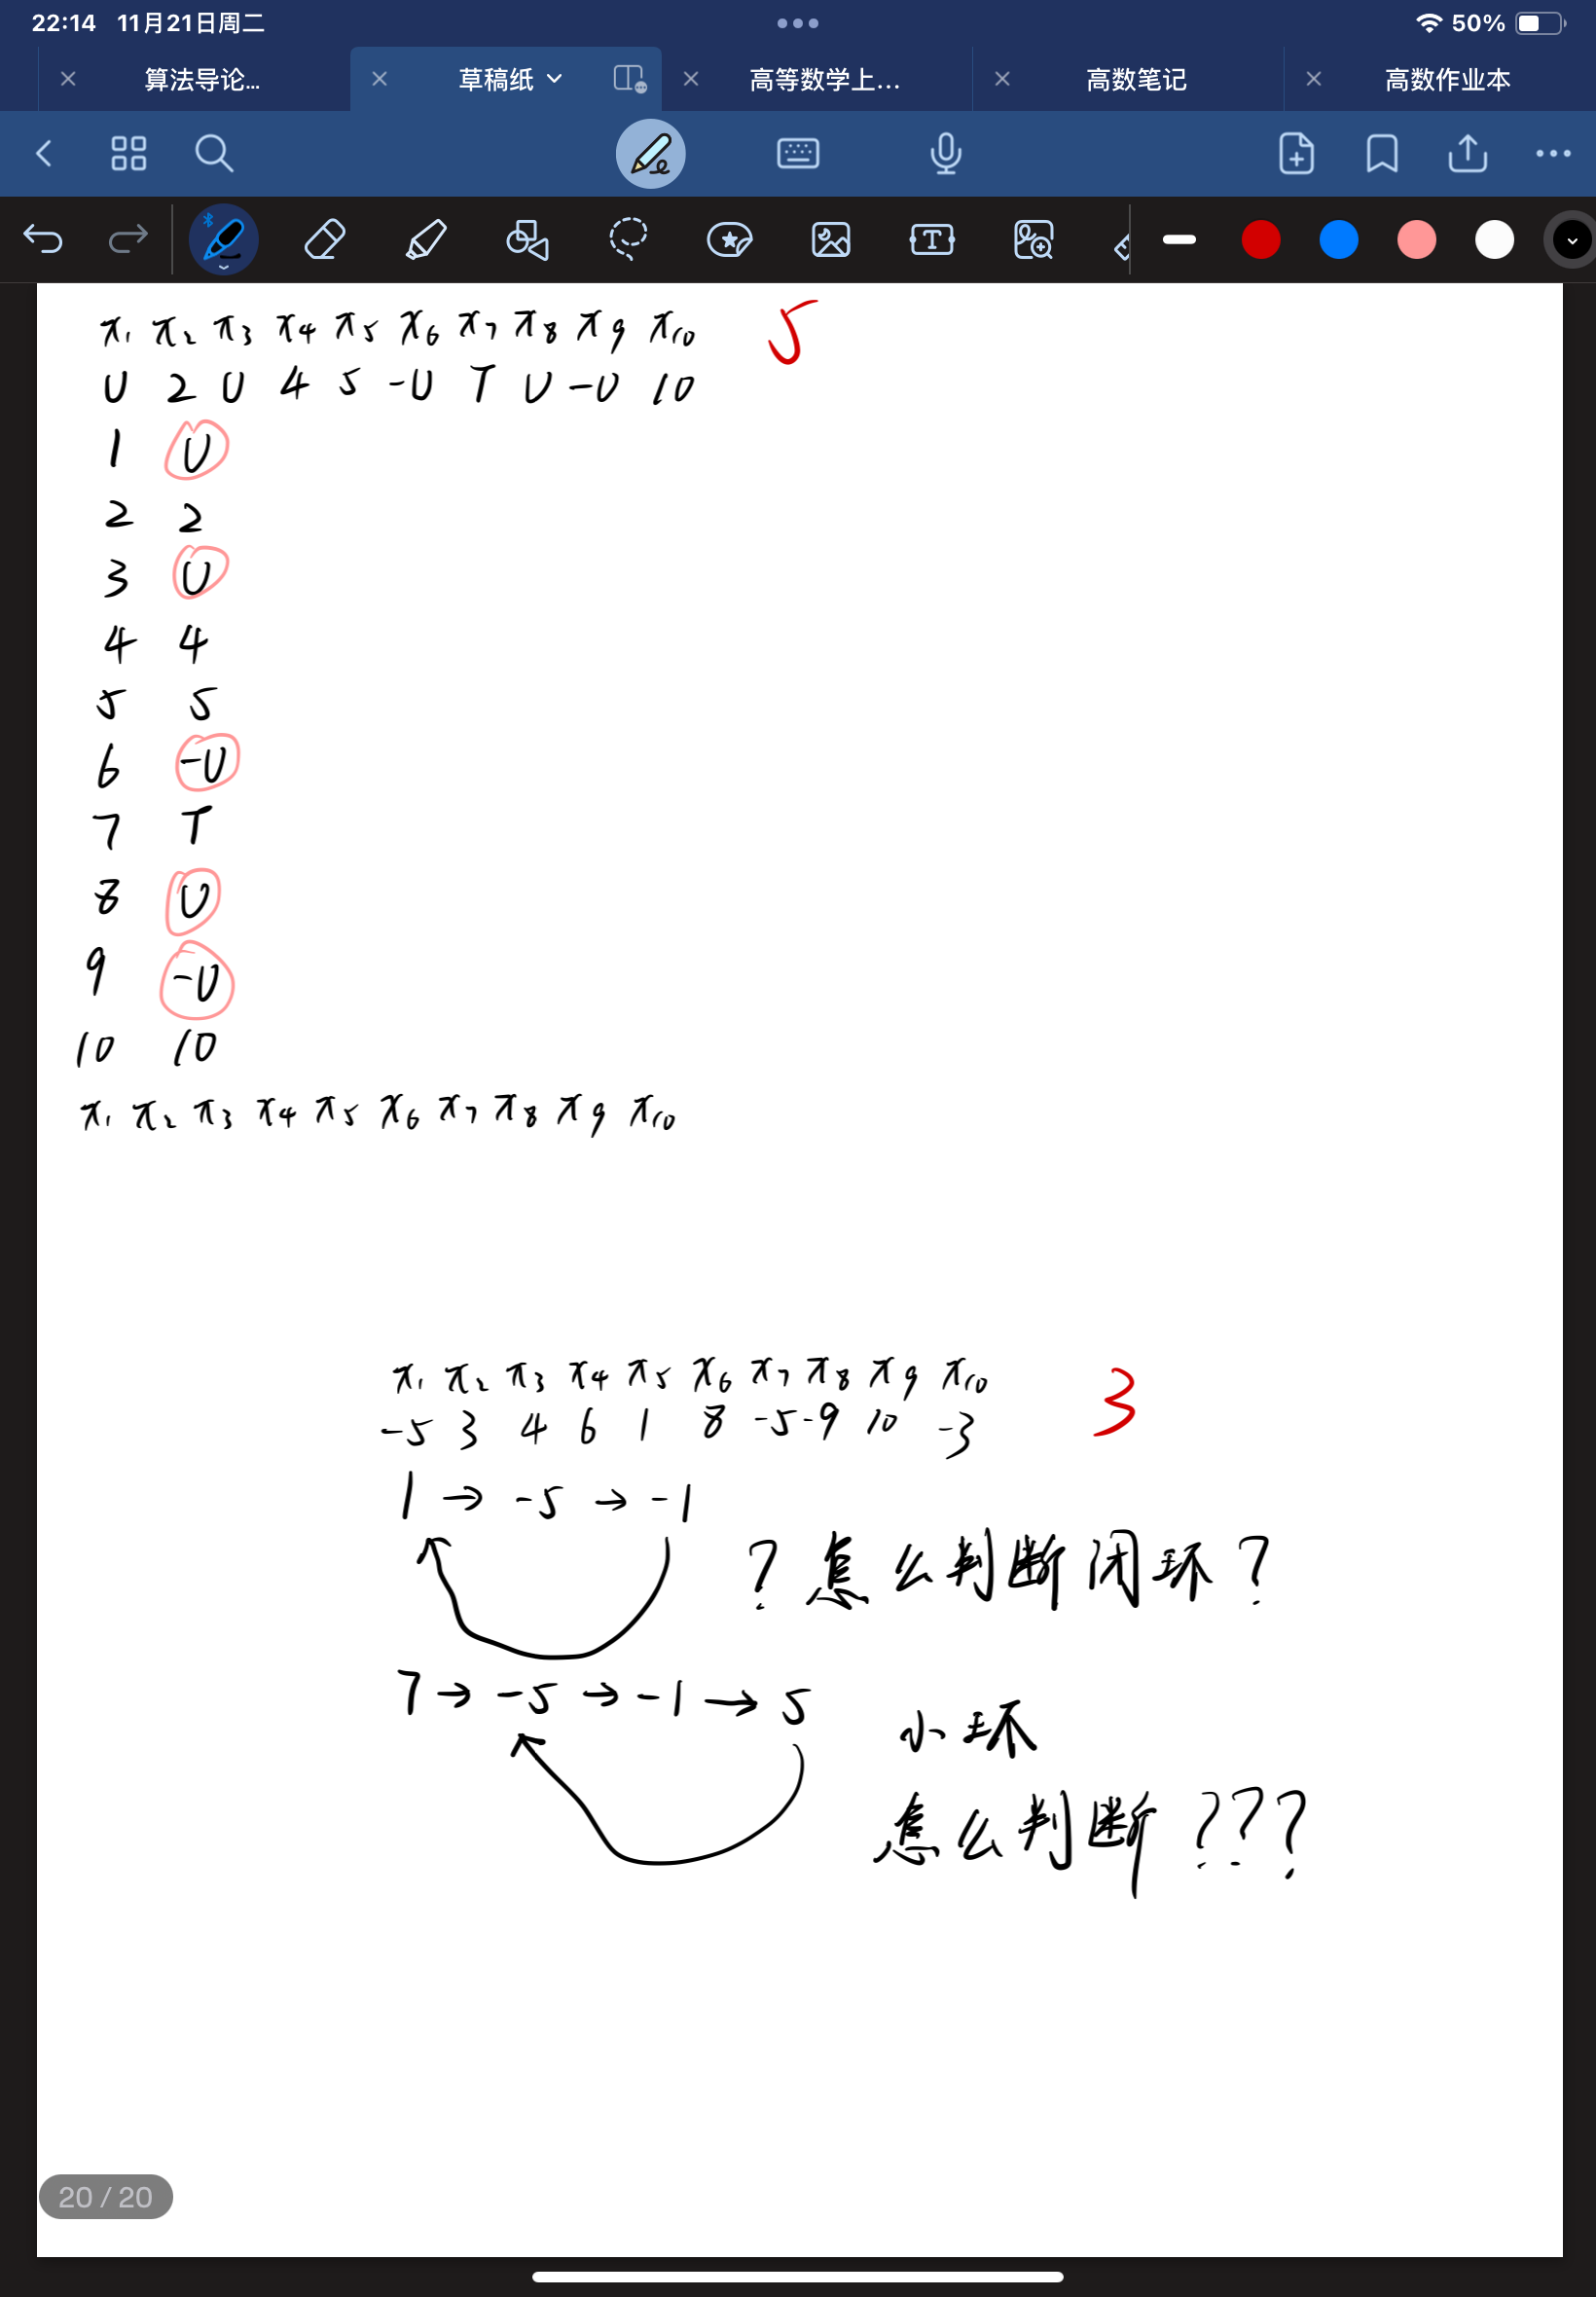 22:14 11月21日周二
50%
算法导论... 草稿纸 高等数学上... 高数笔记 高数作业本
x₁ x₂ x₃ x₄ x₅ x₆ x₇ x₈ x₉ x₁₀ 5
U 2 U 4 5 -U T U -U 10
1 U
2 2
3 U
4 4
5 5
6 -U
7 T
8 U
9 -U
10 10
x₁ x₂ x₃ x₄ x₅ x₆ x₇ x₈ x₉ x₁₀
x₁ x₂ x₃ x₄ x₅ x₆ x₇ x₈ x₉ x₁₀ 3
-5 3 4 6 1 8 -5 -9 10 -3
1 → -5 → -1
? 怎么判断闭环?
7 → -5 → -1 → 5
小环
怎么判断???
20 / 20